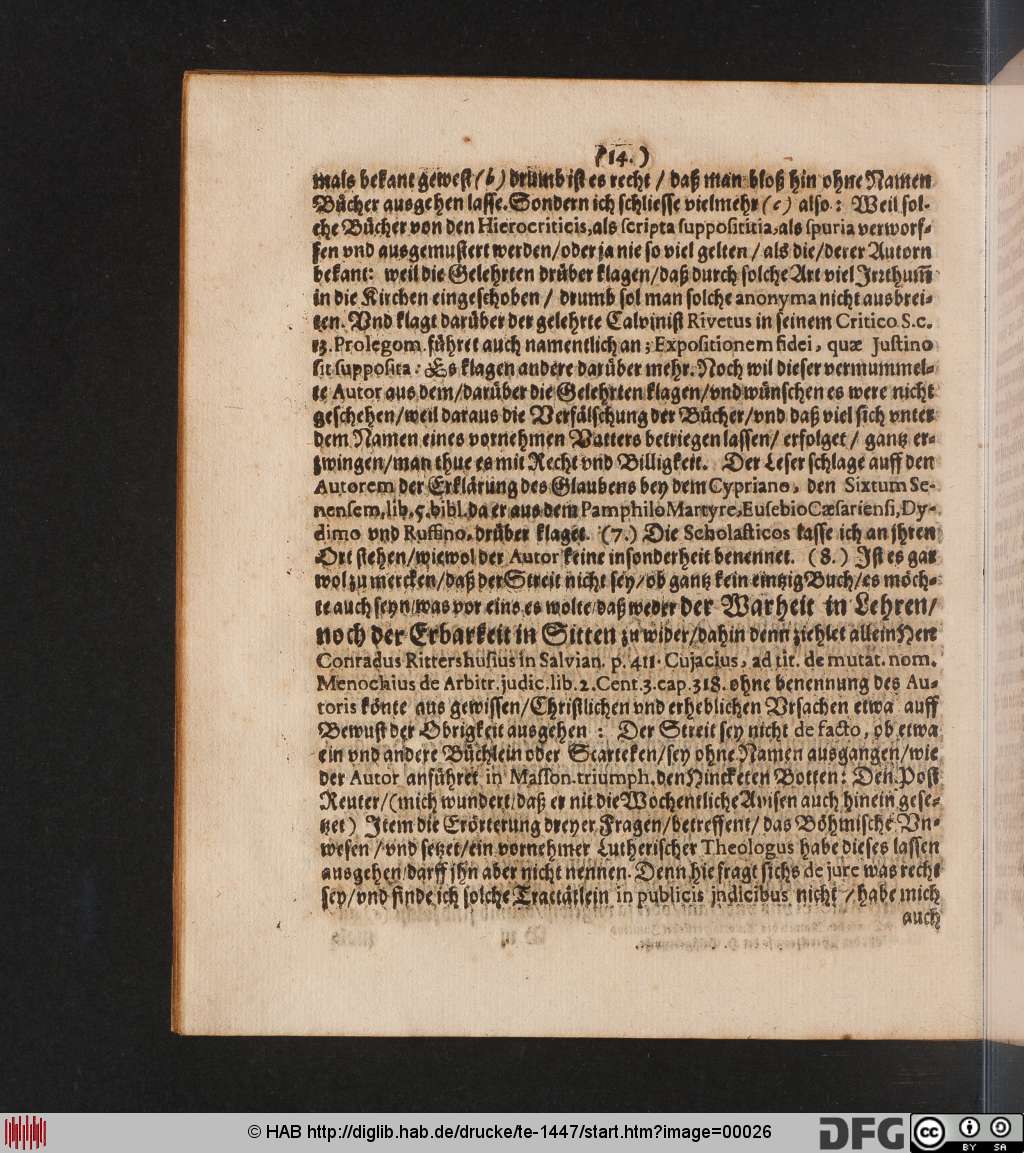 (14.)
mals bekant gewest (b) drumb ist es recht / daß man bloß hin ohne Namen
Bücher ausgehen lasse. Sondern ich schliesse vielmehr (c) also: Weil sol-
che Bücher von den Hierocriticis, als scripta supposititia, als spuria verworf-
fen vnd ausgemustert werden/oder ja nie so viel gelten / als die/derer Autorn
bekant: weil die Gelehrten drüber klagen/daß durch solche Art viel Irrthum̄
in die Kirchen eingeschoben / drumb sol man solche anonyma nicht ausbrei-
ten. Vnd klagt darüber der gelehrte Calvinist Rivetus in seinem Critico S. c.
13. Prolegom. führet auch namentlich an; Expositionem fidei, quæ Justino
sit supposita: Es klagen andere darüber mehr. Noch wil dieser vermummel-
te Autor aus dem/darüber die Gelehrten klagen/vnd wünschen es were nicht
geschehen/weil daraus die Verfälschung der Bücher/vnd daß viel sich vnter
dem Namen eines vornehmen Vatters betriegen lassen/ erfolget / gantz er-
zwingen/man thue es mit Recht vnd Billigkeit. Der Leser schlage auff den
Autorem der Erklärung des Glaubens bey dem Cypriano, den Sixtum Se-
nensem, lib. 5. bibl. da er aus dem Pamphilo Martyre, Eusebio Cæsariensi, Dy-
dimo vnd Ruffino, drüber klaget. (7.) Die Scholasticos lasse ich an jhren
Ort stehen/wiewol der Autor keine insonderheit benennet. (8.) Ist es gar
wol zu mercken/daß der Streit nicht sey/ob gantz kein eintzig Buch/es möch-
te auch seyn/was vor eins es wolte/daß weder der Warheit in Lehren/
noch der Erbarkeit in Sitten zu wider/dahin denn ziehlet allein Herr
Conradus Rittershusius in Salvian. p. 411. Cujacius, ad tit. de mutat. nom.
Menochius de Arbitr. judic. lib. 2. Cent. 3. cap. 318. ohne benennung des Au-
toris könte aus gewissen/Christlichen vnd erheblichen Vrsachen etwa auff
Bewust der Obrigkeit ausgehen : Der Streit sey nicht de facto, ob etwa
ein vnd andere Büchlein oder Scarteken/sey ohne Namen ausgangen/wie
der Autor anführet in Masson. triumph. den Hincketen Botten: Den Post
Reuter/(mich wundert/daß er nit die Wochentliche Avisen auch hinein gese-
tzet) Item die Erörterung dreyer Fragen/betreffent/ das Böhmische Vn-
wesen /vnd setzet/ein vornehmer Lutherischer Theologus habe dieses lassen
ausgehen/darff jhn aber nicht nennen. Denn hie fragt sichs de jure was recht
sey/vnd finde ich solche Tractätlein in publicis jndicibus nicht / habe mich
auch
© HAB http://diglib.hab.de/drucke/te-1447/start.htm?image=00026
DFG
cc BY SA